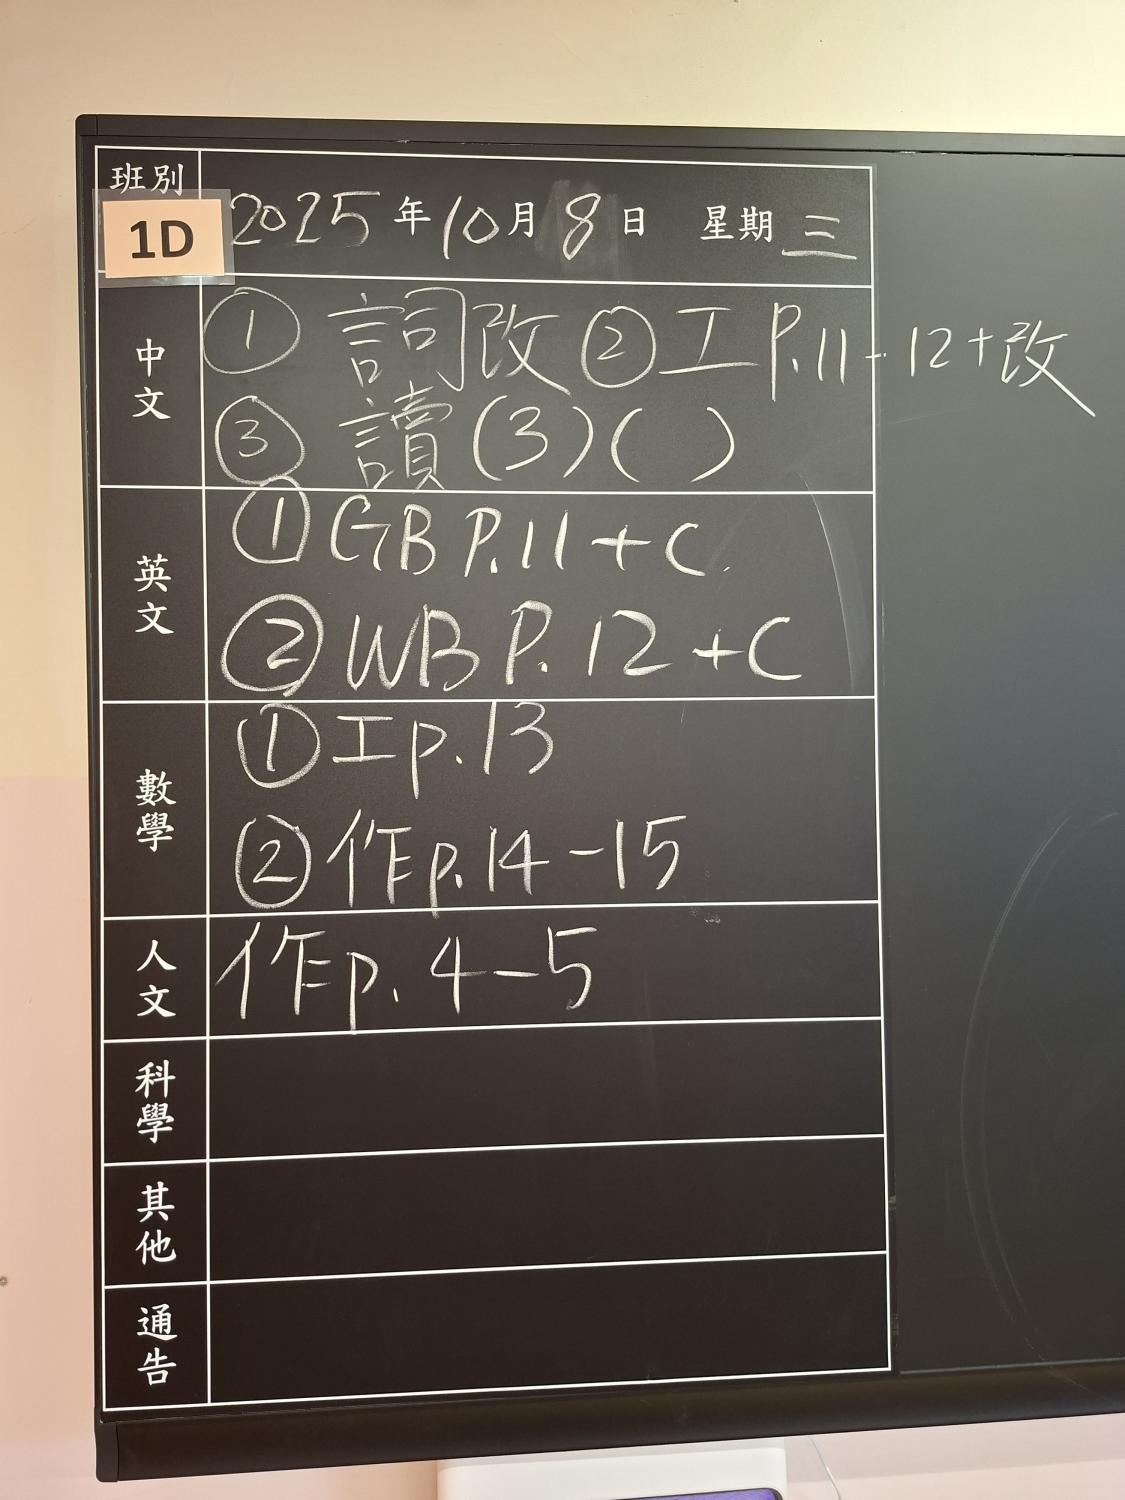 班別
1D
2025年10月8日 星期三
中文
① 詞改 ② 工 P.11-12+改
③ 讀 (3)( )
英文
① GB P.11+C
② WB P.12+C
數學
① 工p.13
② 作p.14-15
人文
作p.4-5
科學
其他
通告